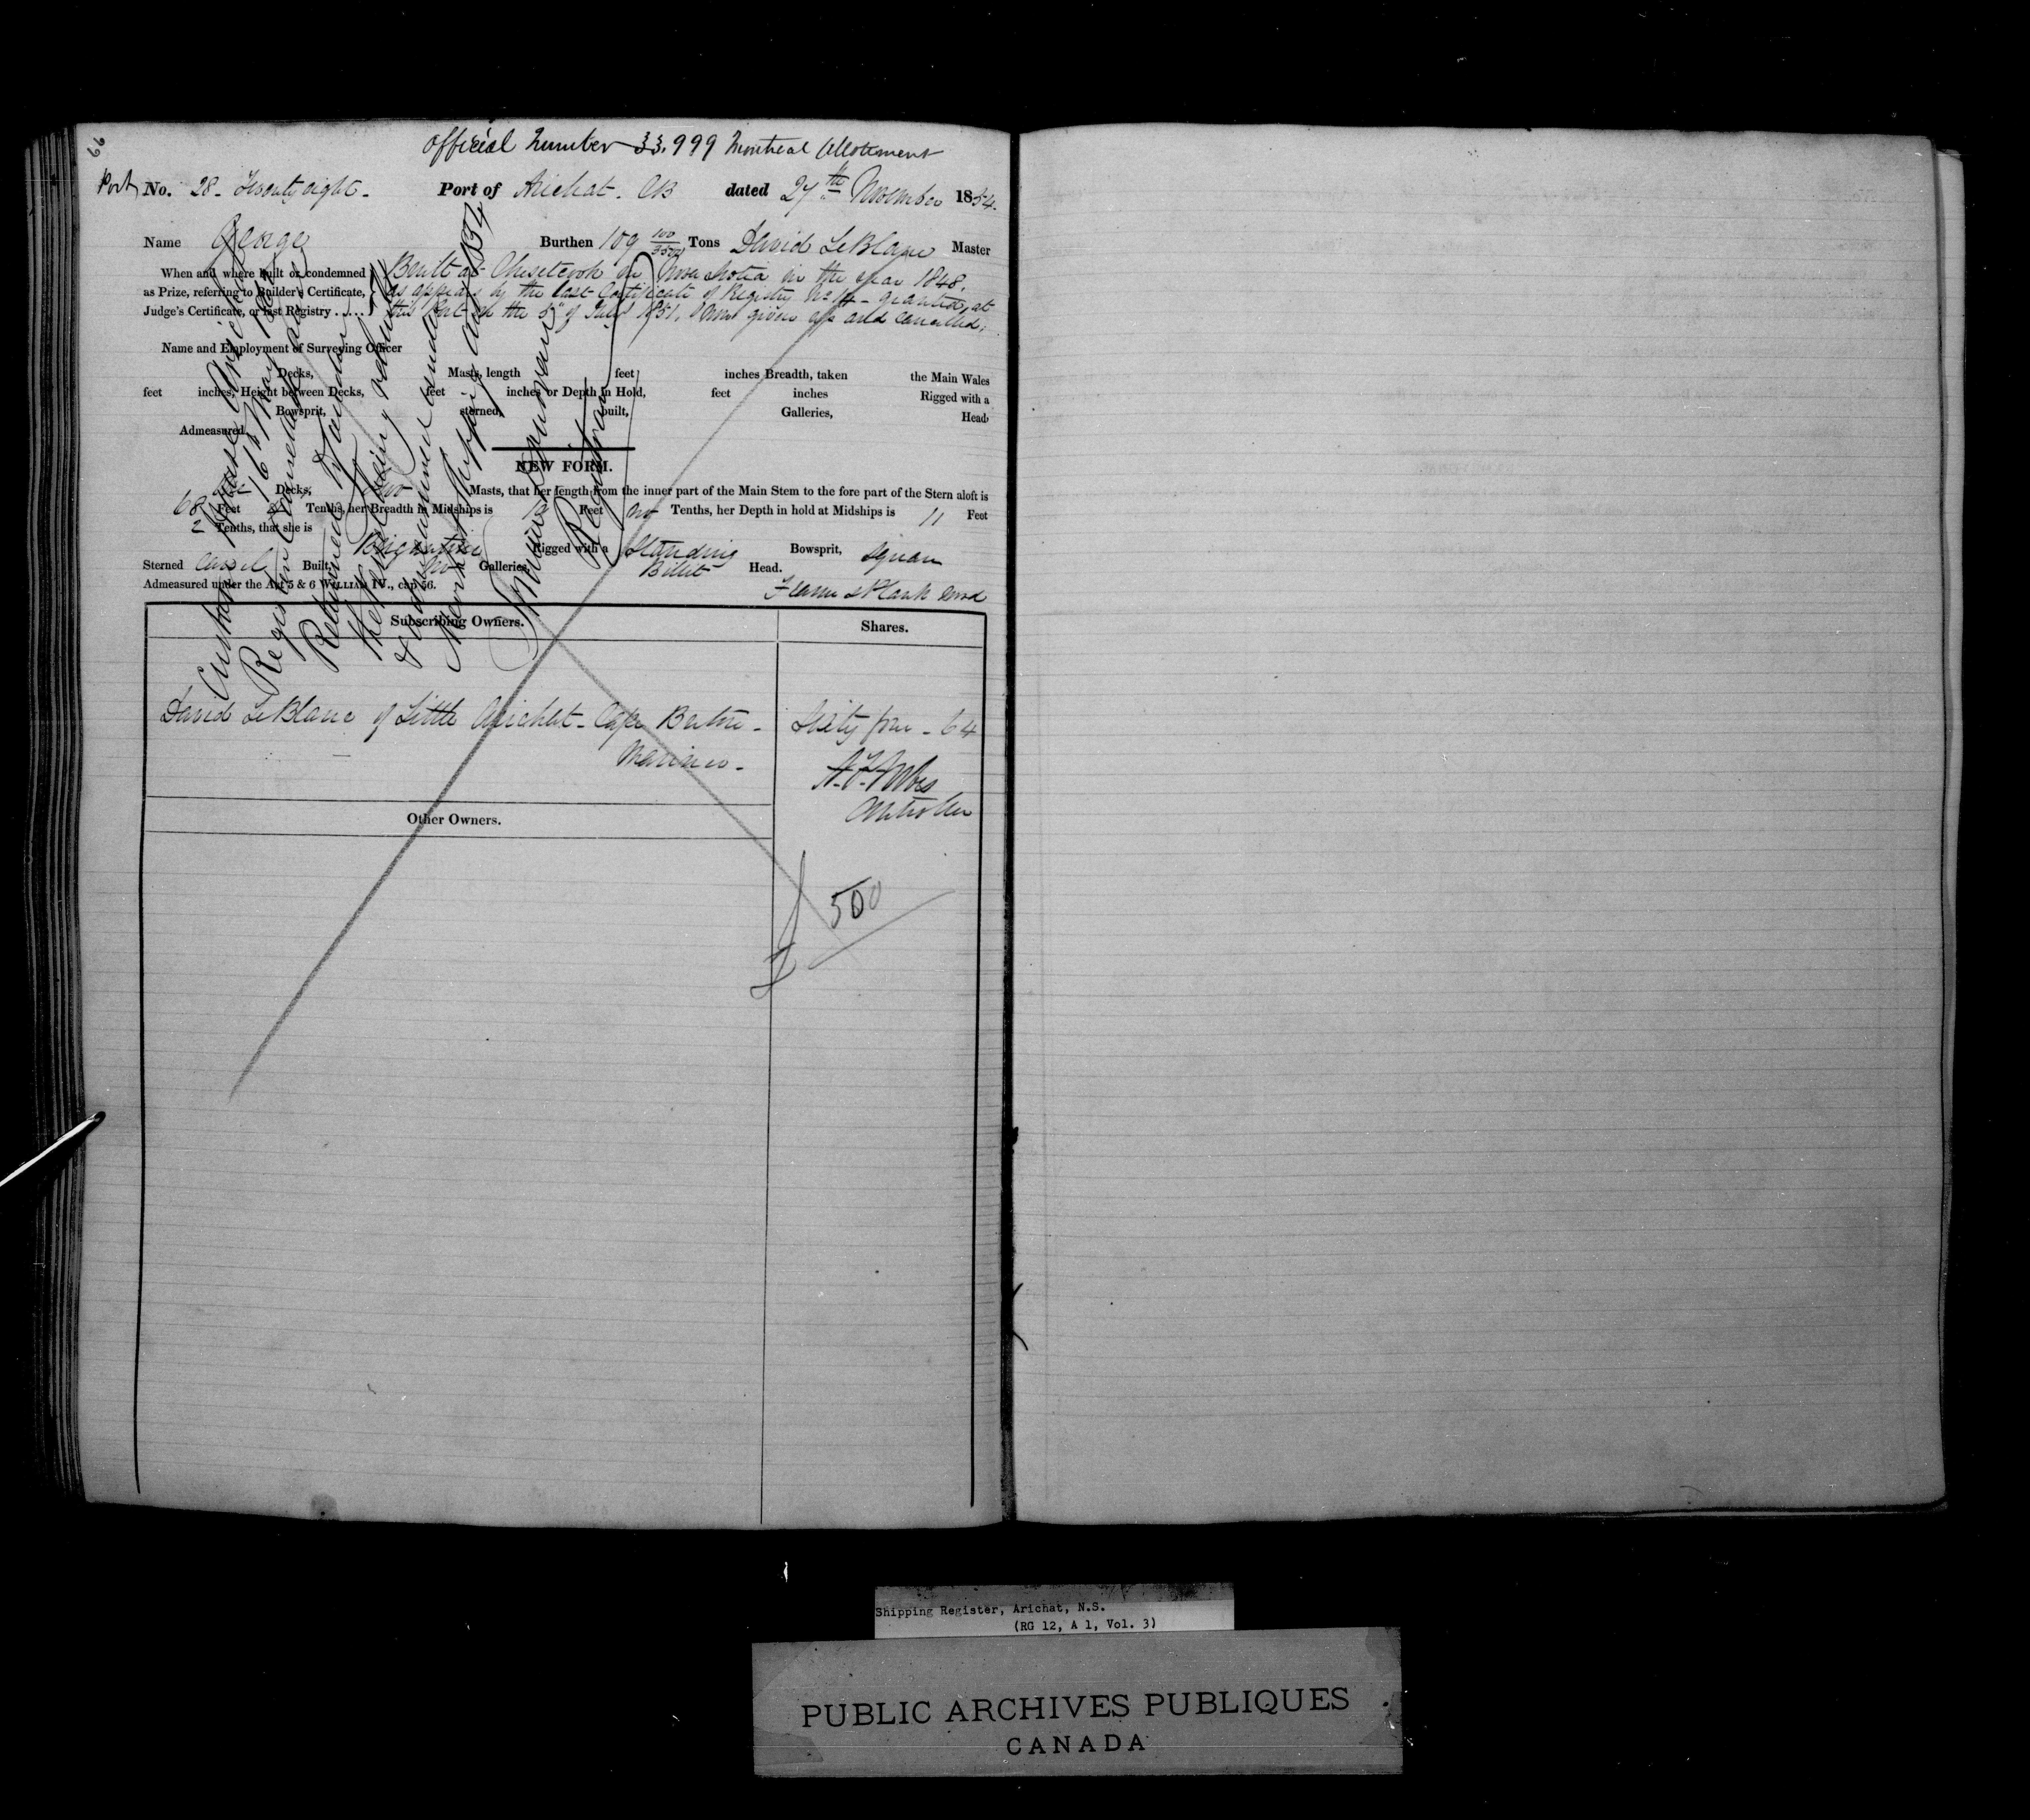 Official Number 33,999 Montreal Allotment
Port No. 28- Twenty eight- Port of Arichat. CB dated 27th November 1854.
Name George Burthen 109 Tons David LeBlanc Master
When and where built or condemned as Prize, referring to Builder's Certificate, Judge's Certificate, or last Registry .....
Built at Chisetcook in Nova Scotia in the year 1848.
as appears by the last Certificate of Registry No 14- granted at
this Port on the 5th of July 1851. Now given up and cancelled.
Name and Employment of Surveying Officer
Decks, Masts, length feet inches Breadth, taken the Main Wales
feet inches, Height between Decks, feet inches or Depth in Hold, feet inches Rigged with a
Bowsprit, sterned, built, Galleries, Head,
Admeasured,
NEW FORM.
One Decks, two Masts, that her length from the inner part of the Main Stem to the fore part of the Stern aloft is
68 Feet Tenths, her Breadth in Midships is Feet no Tenths, her Depth in hold at Midships is 11 Feet
2 Tenths, that she is Brigantine Rigged with a Standing Bowsprit, Square
Sterned Carvel Built, No Galleries, Billet Head.
Admeasured under the Act 5 & 6 WILLIAM IV., cap 56. Frame & Plank Wood
Custom House Arichat
16th May
Register Cancelled
Returned
the
being
under
Merchant Shipping Act 1854
Registrar
Subscribing Owners. Shares.
David LeBlanc of Little Arichat- Cape Breton- Sixty four - 64
Mariner-
Controller
Other Owners.
£ 500
Shipping Register, Arichat, N.S.
(RG 12, A 1, Vol. 3)
PUBLIC ARCHIVES PUBLIQUES
CANADA